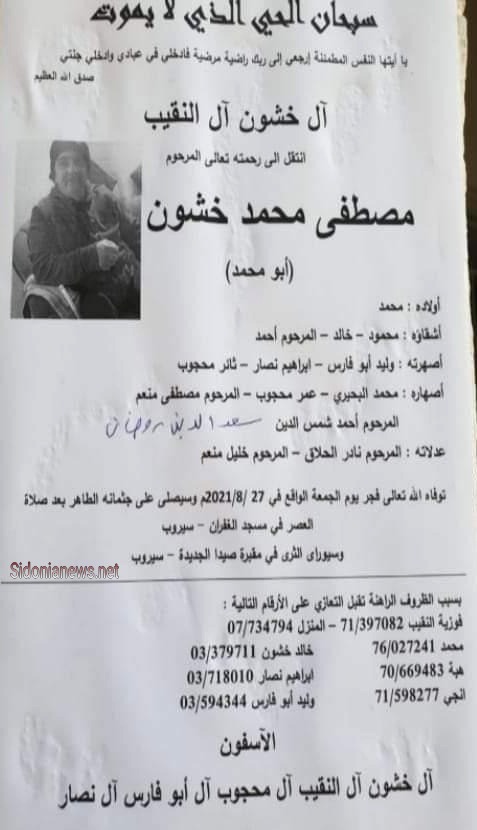 سبحان الحي الذي لا يموت
يا أيتها النفس المطمئنة إرجعي إلى ربك راضية مرضية فادخلي في عبادي وادخلي جنتي
صدق الله العظيم
آل خشون آل النقيب
انتقل الى رحمته تعالى المرحوم
مصطفى محمد خشون
(أبو محمد)
أولاده : محمد
أشقاؤه : محمود – خالد – المرحوم أحمد
أصهرته : وليد أبو فارس – ابراهيم نصار – ثائر محجوب
أصهاره : محمد البحيري – عمر محجوب – المرحوم مصطفى منعم
المرحوم أحمد شمس الدين سعد الدين رمضان
عدلاته : المرحوم نادر الحلاق – المرحوم خليل منعم
توفاه الله تعالى فجر يوم الجمعة الواقع في 27 /2021/8م وسيصلى على جثمانه الطاهر بعد صلاة
العصر في مسجد الغفران – سيروب
وسيورای الثرى في مقبرة صيدا الجديدة – سيروب
Sidonianews.net
بسبب الظروف الراهنة تقبل التعازي على الأرقام التالية :
فوزية النقيب 71/397082 – المنزل 07/734794
محمد 76/027241 خالد خشون 03/379711
هبة 70/669483 ابراهيم نصار 03/718010
انجي 71/598277 وليد أبو فارس 03/594344
الآسفون
آل خشون آل النقيب آل محجوب آل أبو فارس آل نصار